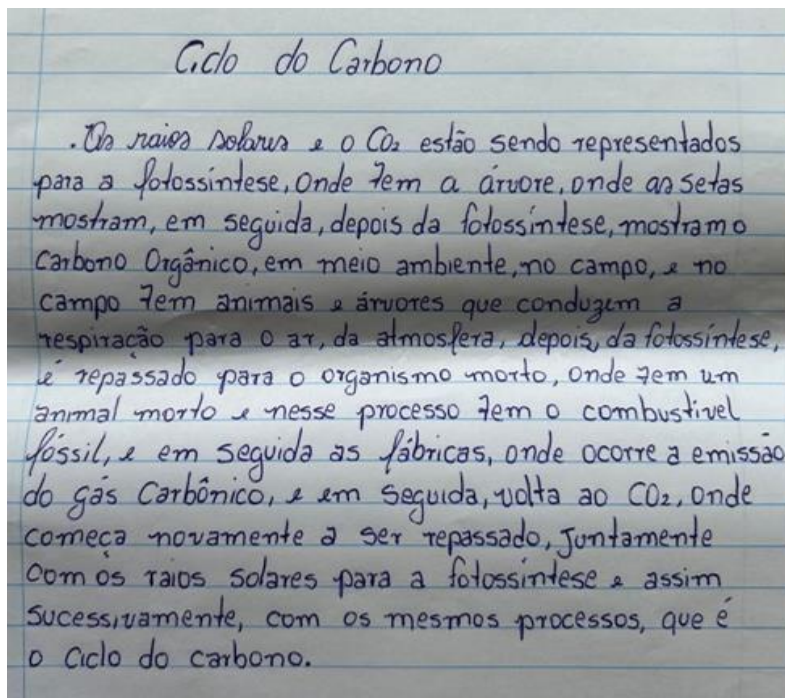 Ciclo do Carbono
. Os raios solares e o CO₂ estão sendo representados
para a fotossíntese, Onde tem a árvore, onde as setas
mostram, em seguida, depois da fotossíntese, mostram o
Carbono Orgânico, em meio ambiente, no campo, e no
campo tem animais e árvores que conduzem a
respiração para o ar, da atmosfera, depois, da fotossíntese,
é repassado para o organismo morto, onde tem um
animal morto e nesse processo tem o combustivel
fóssil, e em seguida as fábricas, onde ocorre a emissão
do gás Carbônico, e em seguida, volta ao CO₂, onde
começa novamente a ser repassado, Juntamente
com os raios solares para a fotossíntese e assim
sucessivamente, com os mesmos processos, que é
o Ciclo do carbono.